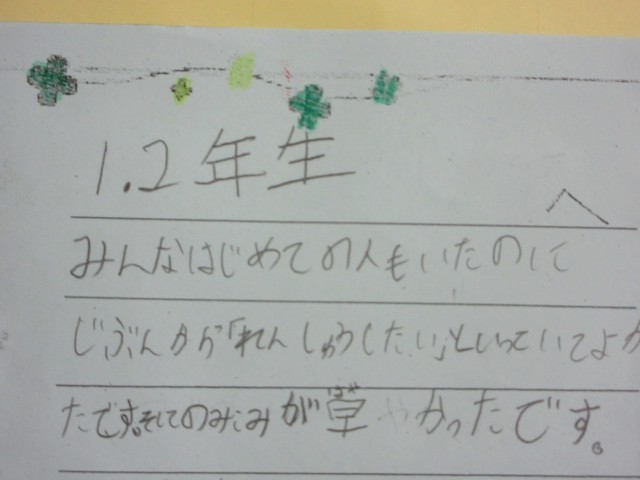 1.2年生
へ
みんなはじめての人もいたのに
じぶんから「れんしゅうしたい」といっていてよか
たです。そしてのみこみが草かったです。